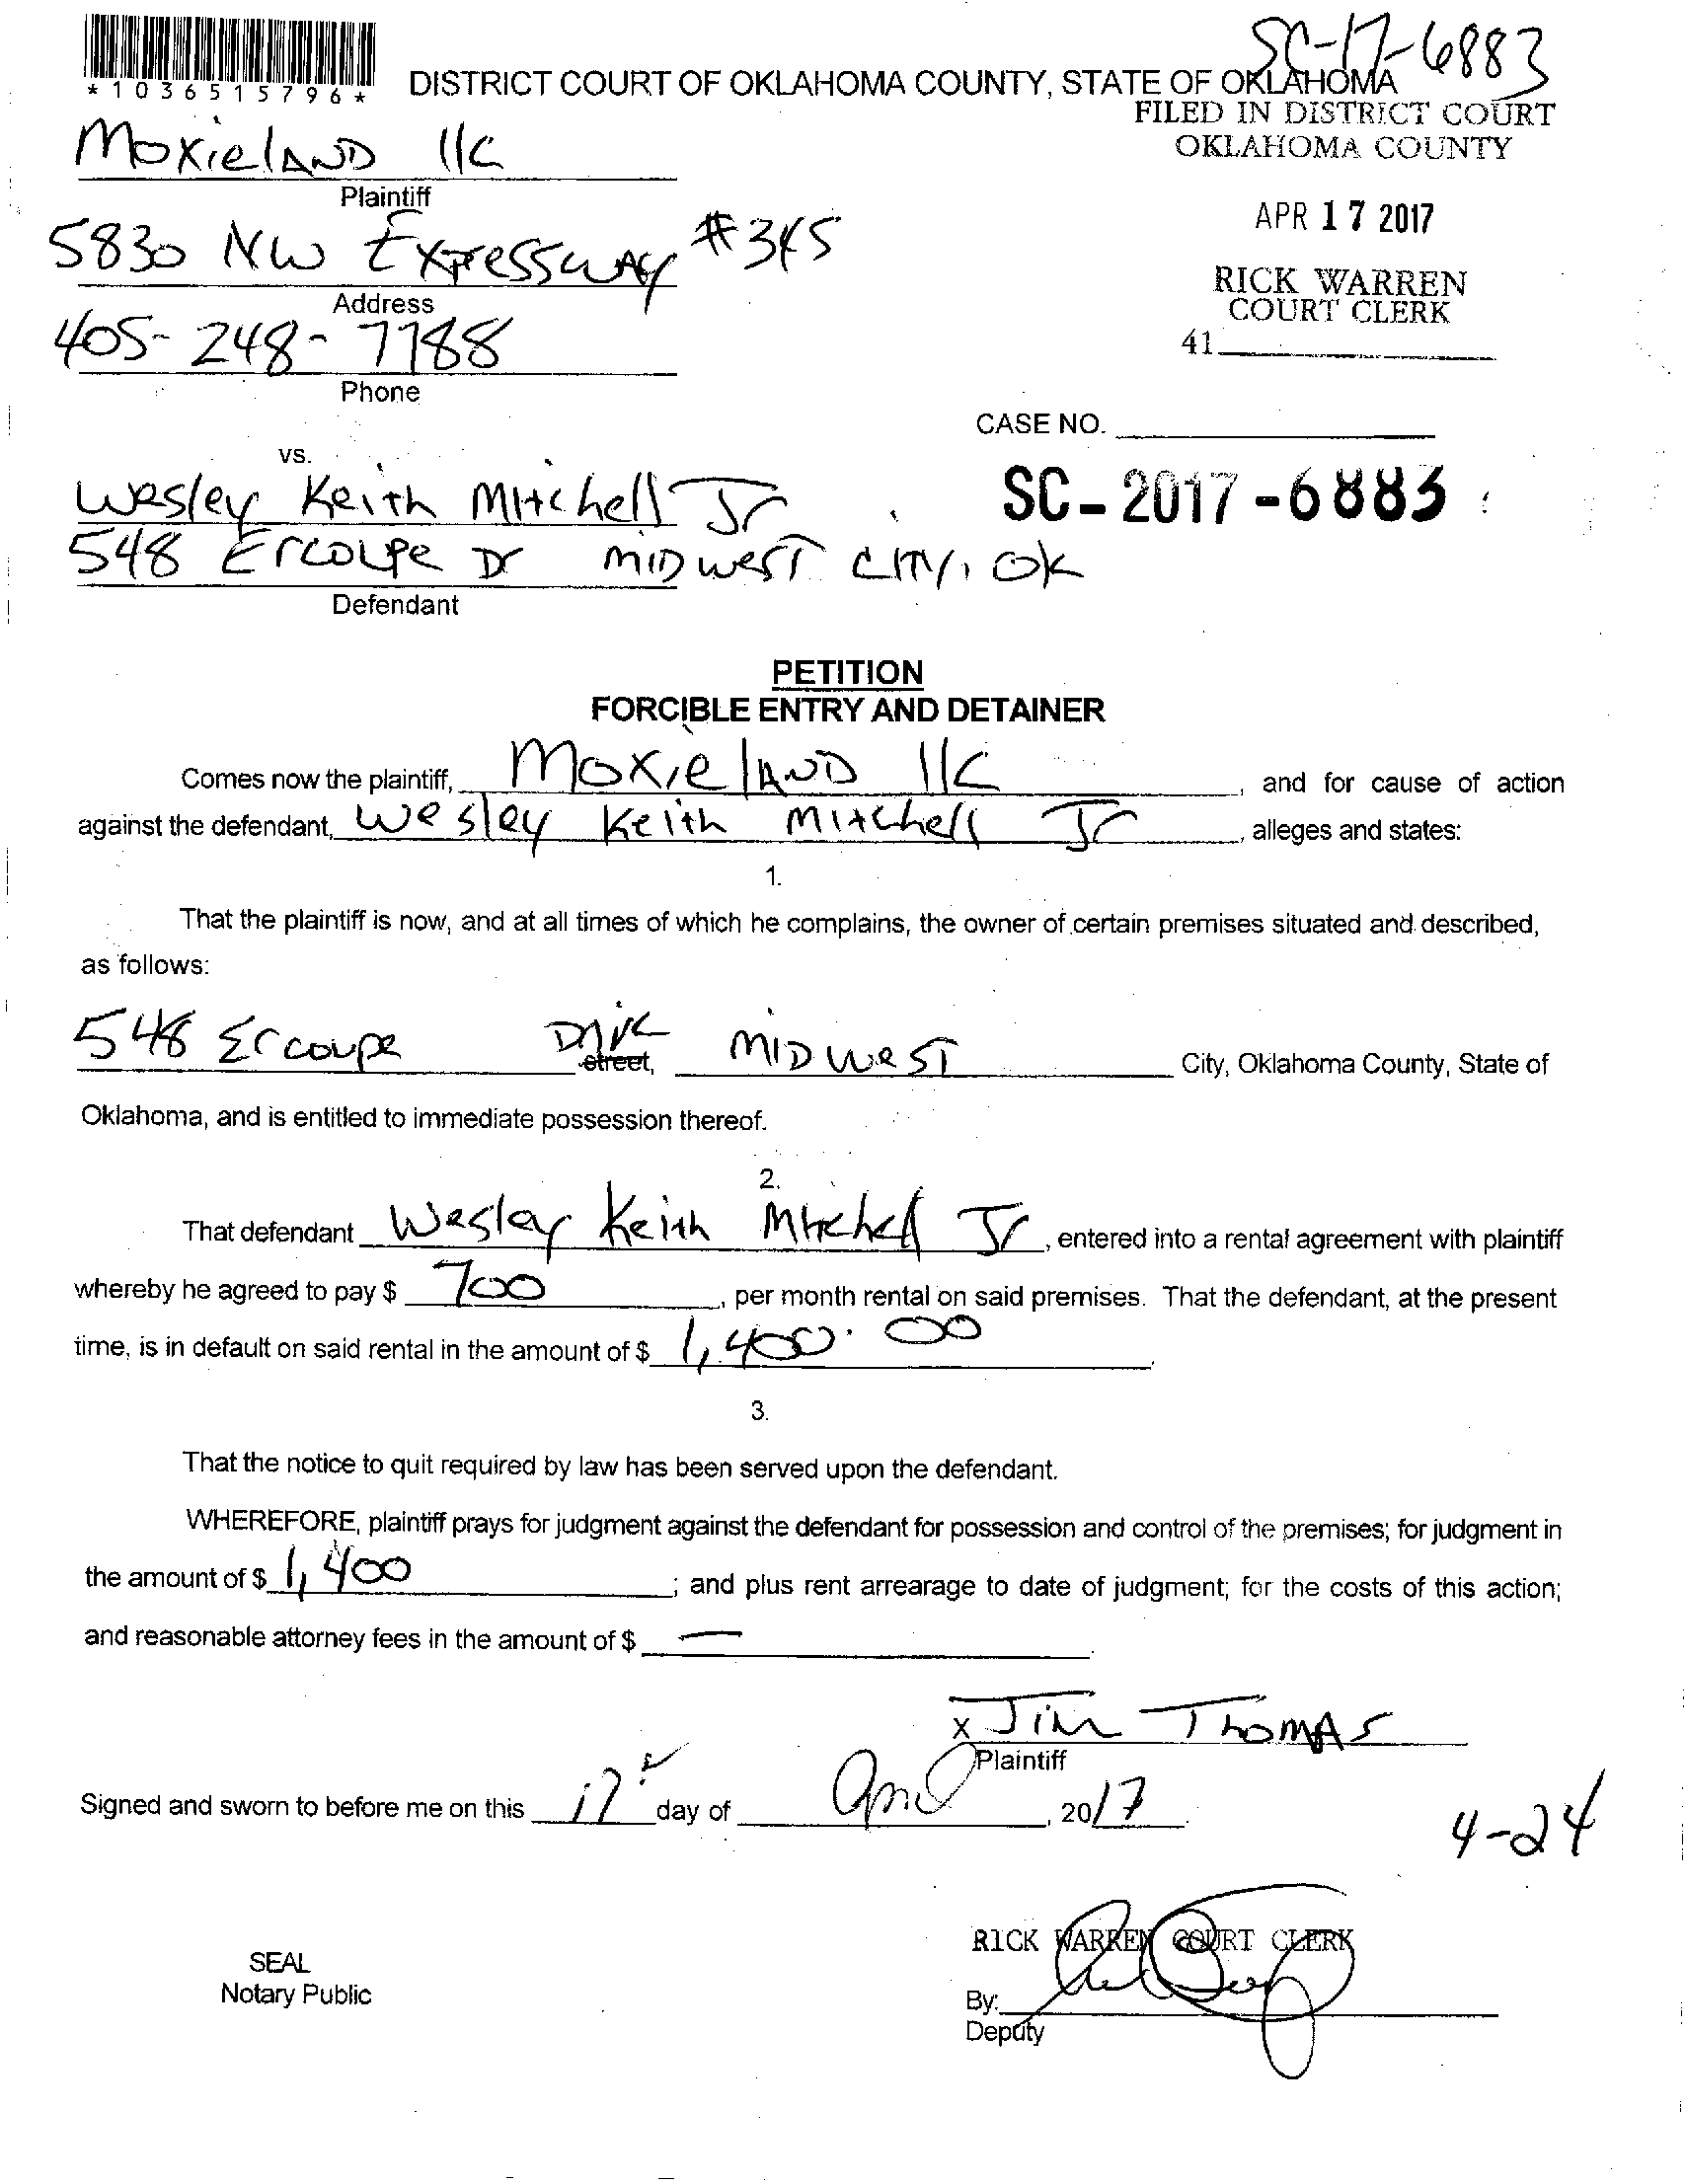 SC-17-6883
*1036515796*
DISTRICT COURT OF OKLAHOMA COUNTY, STATE OF OKLAHOMA
FILED IN DISTRICT COURT
OKLAHOMA COUNTY
MoxielAND llc
Plaintiff
APR 17 2017
5830 NW Expressway #345
Address
RICK WARREN
COURT CLERK
405-248-7788
41
Phone
CASE NO.
vs.
SC-2017-6883
Wesley Keith Mitchell Jr
548 Ercoupe Dr Midwest City, OK
Defendant
PETITION
FORCIBLE ENTRY AND DETAINER
Comes now the plaintiff, MoxielAND llc, and for cause of action
against the defendant, Wesley Keith Mitchell Jr, alleges and states:
1.
That the plaintiff is now, and at all times of which he complains, the owner of certain premises situated and described,
as follows:
548 Ercoupe Drive street, MIDWEST City, Oklahoma County, State of
Oklahoma, and is entitled to immediate possession thereof.
2.
That defendant Wesley Keith Mitchell Jr, entered into a rental agreement with plaintiff
whereby he agreed to pay $ 700, per month rental on said premises. That the defendant, at the present
time, is in default on said rental in the amount of $ 1,400.00.
3.
That the notice to quit required by law has been served upon the defendant.
WHEREFORE, plaintiff prays for judgment against the defendant for possession and control of the premises; for judgment in
the amount of $ 1,400; and plus rent arrearage to date of judgment; for the costs of this action;
and reasonable attorney fees in the amount of $ —.
x Jim Thomas
Plaintiff
Signed and sworn to before me on this 17 day of April, 2017.
4-24
RICK WARREN COURT CLERK
SEAL
Notary Public
By:
Deputy